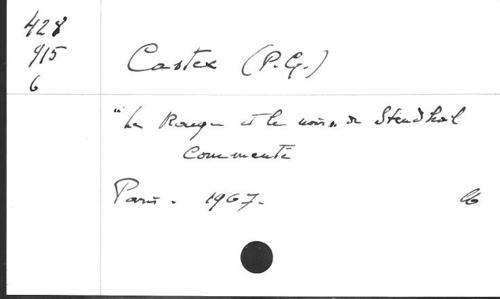 428
915
6
Castex (P.G.)
"Le Rouge et le noir" de Stendhal
Commenté
Paris. 1967.